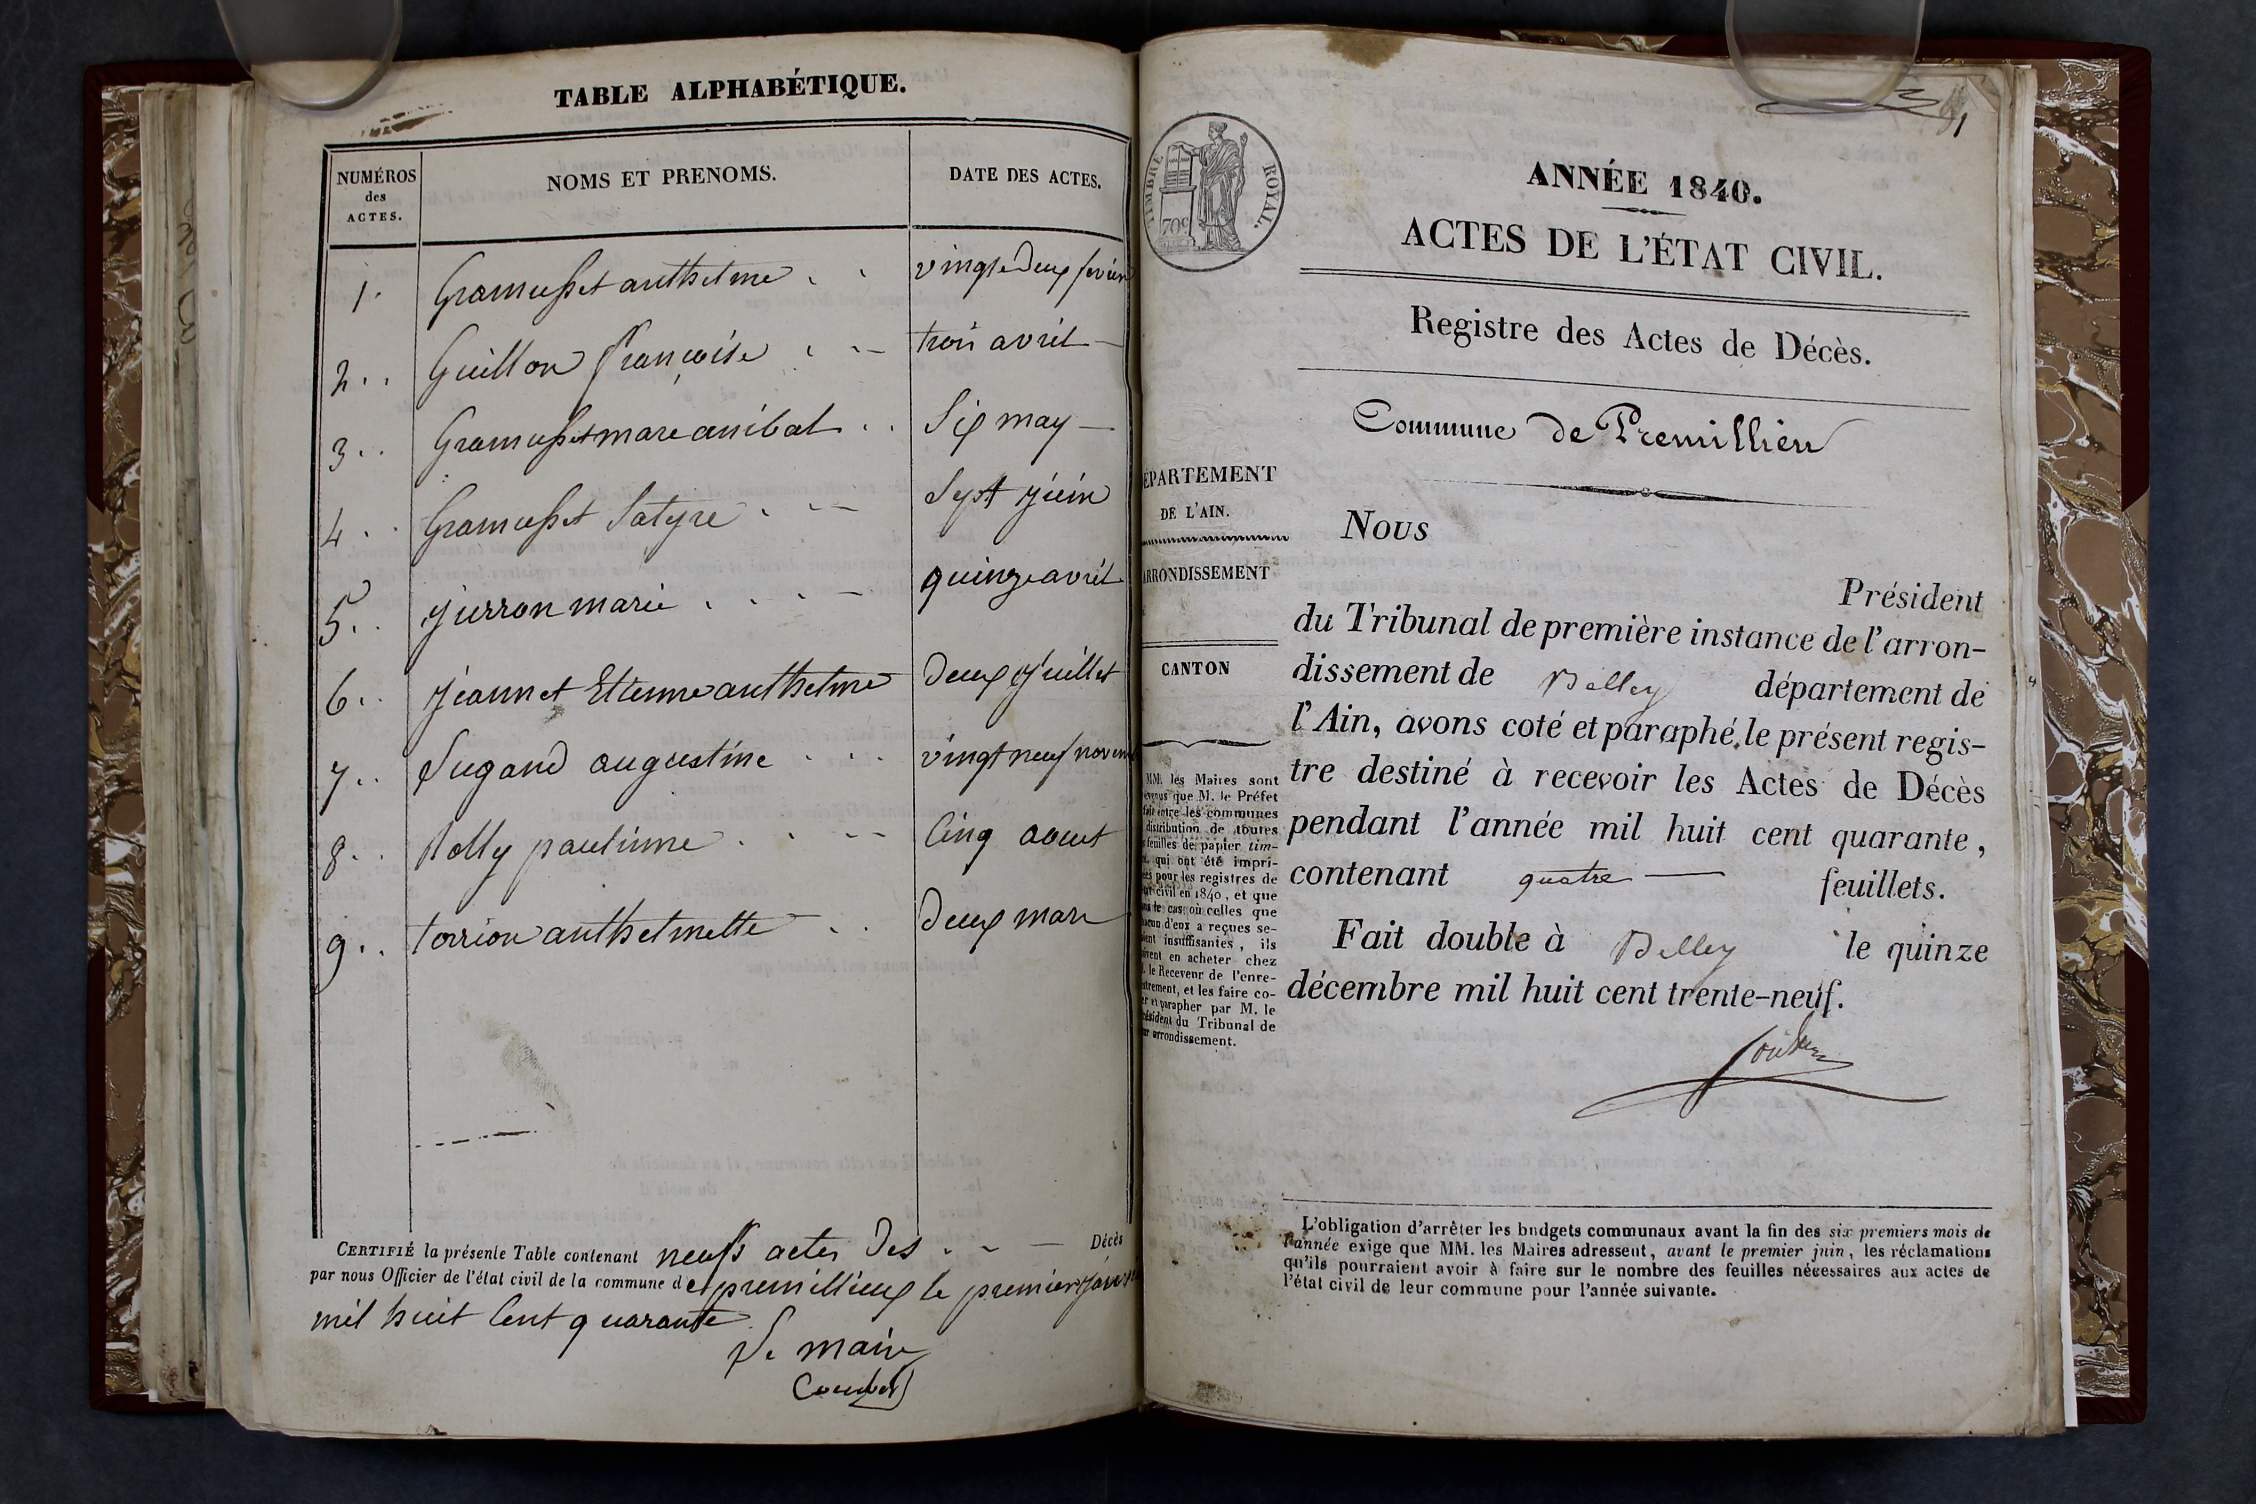 TABLE ALPHABÉTIQUE.
NUMÉROS
des
ACTES.
NOMS ET PRENOMS.
DATE DES ACTES.
1. Gramusset anthelme vingt deux fevier
2. Guillon françoise trois avril
3. Gramusset marc anibal Six may
4. Gramusset Satyre Sept juin
5. jurron marie quinze avril
6. jeannet Etienne anthelme Deux juillet
7. Sugand augustine vingt neuf novem
8. paulinne Cinq aout
9. torrion anthelmette Deux mars
CERTIFIÉ la présente Table contenant neufs actes Des Décès
par nous Officier de l'état civil de la commune de premillieux le premier janv
mil huit Cent quarante
Le maire
91
TIMBRE ROYAL.
70c
ANNÉE 1840.
ACTES DE L'ÉTAT CIVIL.
Registre des Actes de Décès.
Commune de Premillieu
ÉPARTEMENT
DE L'AIN.
ARRONDISSEMENT
CANTON
MM. les Maires sont
que M. le Préfet
fait entre les communes
distribution de toutes
feuilles de papier tim-
qui ont été impri-
pour les registres de
civil en 1840, et que
le cas où celles que
d'eux a reçues se-
insuffisantes, ils
en acheter chez
le Receveur de l'enre-
, et les faire co-
et parapher par M. le
Président du Tribunal de
arrondissement.
Nous
Président
du Tribunal de première instance de l'arron-
dissement de Belley département de
l'Ain, avons coté et paraphé le présent regis-
tre destiné à recevoir les Actes de Décès
pendant l'année mil huit cent quarante,
contenant quatre feuillets.
Fait double à Belley le quinze
décembre mil huit cent trente-neuf.
L'obligation d'arrêter les budgets communaux avant la fin des six premiers mois de
l'année exige que MM. les Maires adressent, avant le premier juin, les réclamations
qu'ils pourraient avoir à faire sur le nombre des feuilles nécessaires aux actes de
l'état civil de leur commune pour l'année suivante.